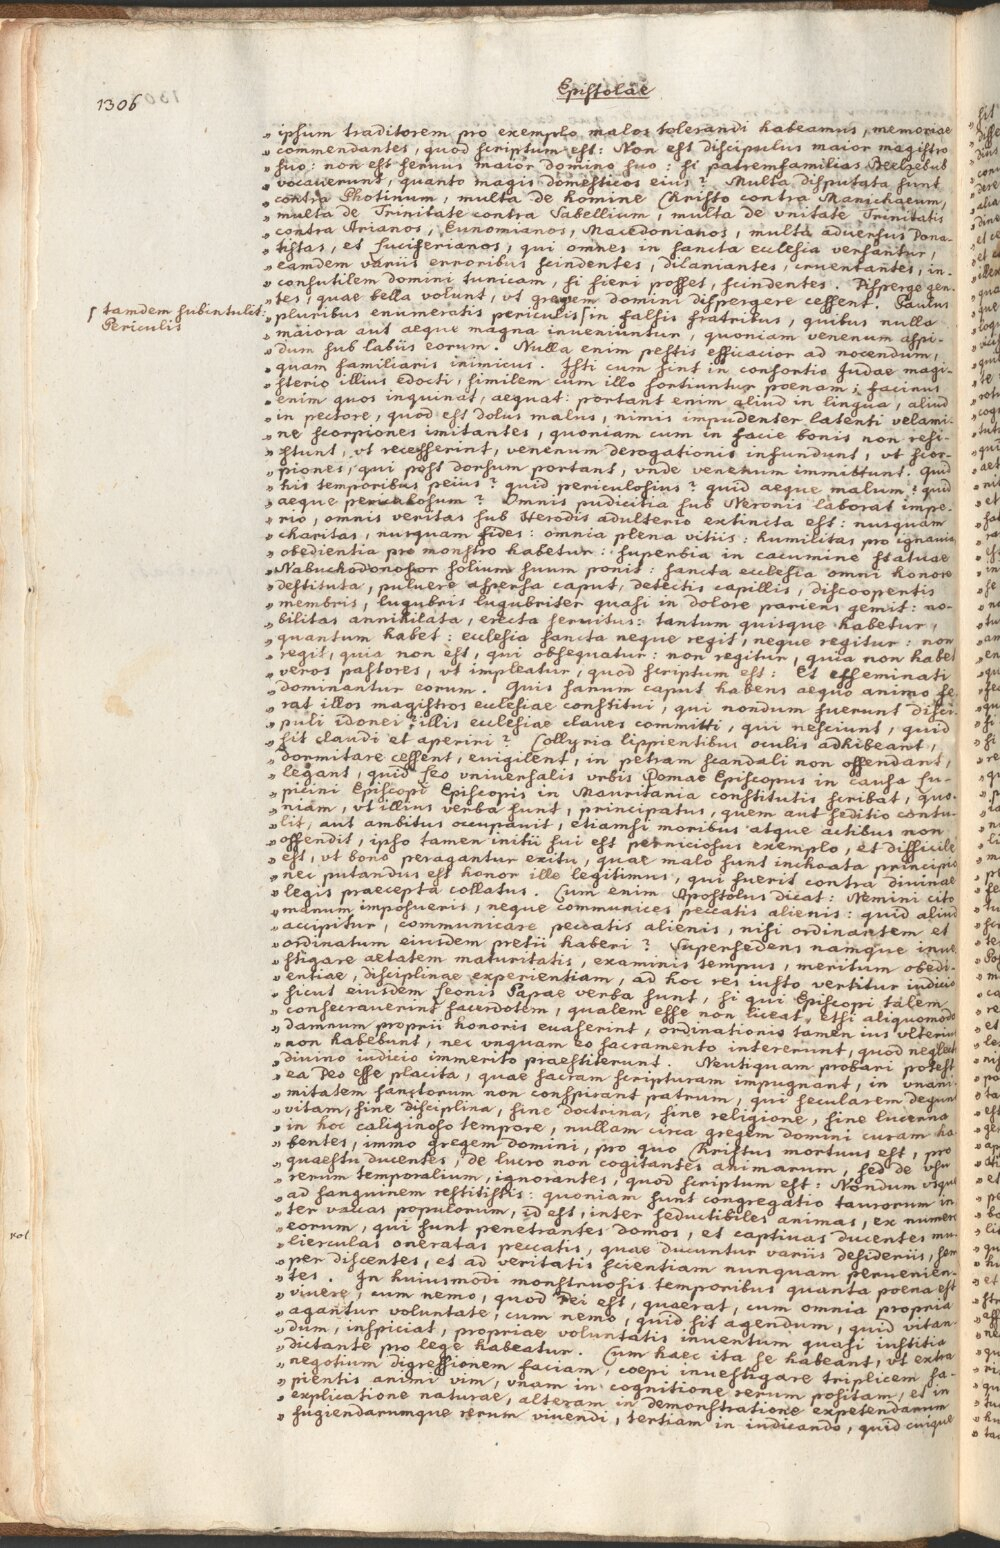 1306
Epistolae
„ ipsum traditorem pro exemplo malos tolerandi habeamus, memoriae
„ commendantes, quod scriptum est: Non est discipulus maior magistro
„ suo: non est seruus maior domino suo: si patremfamilias Beelzebub
„ vocauerunt, quanto magis domesticos eius? Multa disputata sunt
„ contra Photinum, multa de homine Christo contra Manichaeum,
„ multa de Trinitate contra Sabellium, multa de vnitate Trinitatis
„ contra Arianos, Eunomianos, Macedonianos, multa aduersus Dona-
„ tistas, et Luciferianos, qui omnes in sancta ecclesia versantur,
„ eamdem variis erroribus scindentes, dilaniantes, cruentantes, in-
„ consutilem domini tunicam, si fieri posset, scindentes. Disperge gen-
„ tes, quae bella volunt, vt gregem domini dispergere cessent. Paulus
ſ tamdem subintulit:
Periculis
„ pluribus enumeratis periculis ſ in falsis fratribus, quibus nulla
„ maiora aut aeque magna inueniuntur, quoniam venenum aspi-
„ dum sub labiis eorum. Nulla enim pestis efficacior ad nocendum,
„ quam familiaris inimicus. Isti cum sint in consortio Iudae magi-
„ sterio illius edocti, similem cum illo sortiuntur poenam; facinus
„ enim quos inquinat, aequat: portant enim aliud in lingua, aliud
„ in pectore, quod est dolus malus, nimis impudenter latenti velami-
„ ne scorpiones imitantes, quoniam cum in facie bonis non resi-
„ stunt, vt recesserint, venenum derogationis infundunt, vt scor-
„ piones, qui post dorsum portant, vnde venenum immittunt. Quid
„ his temporibus peius? quid periculosius? quid aeque malum? quid
„ aeque periculosum? Omnis pudicitia sub Neronis laborat impe-
„ rio, omnis veritas sub Herodis adulterio extincta est: nusquam
„ charitas, nusquam fides: omnia plena vitiis: humilitas pro ignauia,
„ obedientia pro monstro habetur: superbia in cacumine statuae
„ Nabuchodonosor solium suum ponit: sancta ecclesia omni honore
„ destituta, puluere aspersa caput, detectis capillis, discoopertis
„ membris, lugubris lugubriter quasi in dolore pariens gemit: no-
„ bilitas annihilata, erecta seruitus: tantum quisque habetur,
„ quantum habet: ecclesia sancta neque regit, neque regitur: non
„ regit, quia non est, qui obsequatur: non regitur, quia non habet
„ veros pastores, vt impleatur, quod scriptum est: Et effeminati
„ dominantur eorum. Quis sanum caput habens aequo animo fe-
„ rat illos magistros ecclesiae constitui, qui nondum fuerunt disci-
„ puli idonei? illis ecclesiae claues committi, qui nesciunt, quid
„ sit claudi et aperiri? Collyria lippientibus oculis adhibeant,
„ dormitare cessent, euigilent, in petram scandali non offendant,
„ legant, quid Leo vniuersalis vrbis Romae Episcopus in causa Lu-
„ picini Episcopi Episcopis in Mauritania constitutis scribat, quo-
„ niam, vt illius verba sunt, principatus, quem aut seditio contu-
„ lit, aut ambitus occupauit, etiamsi moribus atque actibus non
„ offendit, ipso tamen initii sui est perniciosus exemplo, et difficile
„ est, vt bono peragantur exitu, quae malo sunt inchoata principio
„ nec putandus est honor ille legitimus, qui fuerit contra diuinae
„ legis praecepta collatus. Cum enim Apostolus dicat: Nemini cito
„ manum imposueris, neque communices peccatis alienis: quid aliud
„ accipitur, communicare peccatis alienis, nisi ordinantem et
„ ordinatum eiusdem pretii haberi? Supersedens namque inue-
„ stigare aetatem maturitatis, examinis tempus, meritum obedi-
„ entiae, disciplinae experientiam, ad hoc res iusto vertitur iudicio
„ sicut eiusdem Leonis Papae verba sunt, si qui Episcopi talem
„ consecrauerint sacerdotem, qualem esse non liceat, etsi aliquomodo
„ damnum proprii honoris euaserint, ordinationis tamen ius vlterius
„ non habebunt, nec vnquam eo sacramento intererunt, quod neglect
„ diuino iudicio immerito praestiterunt. Neutiquam probari potest
„ ea Deo esse placita, quae sacram scripturam impugnant, in vnani-
„ mitatem sanctorum non conspirant patrum, qui secularem degunt
„ vitam, sine disciplina, sine doctrina, sine religione, sine lucerna
„ in hoc caliginoso tempore, nullam circa gregem domini curam ha-
„ bentes, immo gregem domini, pro quo Christus mortuus est, pro
„ quaestu ducentes, de lucro non cogitantes animarum, sed de vsu
„ rerum temporalium, ignorantes, quod scriptum est: Nondum vsque
„ ad sanguinem restitistis: quoniam sunt congregatio taurorum in-
„ ter vaccas populorum, id est, inter seductibiles animas, ex numero
„ eorum, qui sunt penetrantes domos, et captiuas ducentes mu-
„ lierculas oneratas peccatis, quae ducuntur variis desideriis, sem
„ per discentes, et ad veritatis scientiam nunquam peruenien-
„ tes. In huiusmodi monstruosis temporibus quanta poena est
„ viuere, cum nemo, quod Dei est, quaerat, cum omnia propria
„ agantur voluntate, cum nemo, quid sit agendum, quid vitan-
„ dum, inspiciat, propriae voluntatis inuentum quasi iustitia
„ dictante pro lege habeatur. Cum haec ita se habeant, vt extra
„ negotium digressionem faciam, coepi inuestigare triplicem sa-
„ pientis animi vim, vnam in cognitione rerum positam, et in
„ explicatione naturae, alteram in demonstratione expetendarum
„ fugiendarumque rerum viuendi, tertiam in iudicando, quid cuique